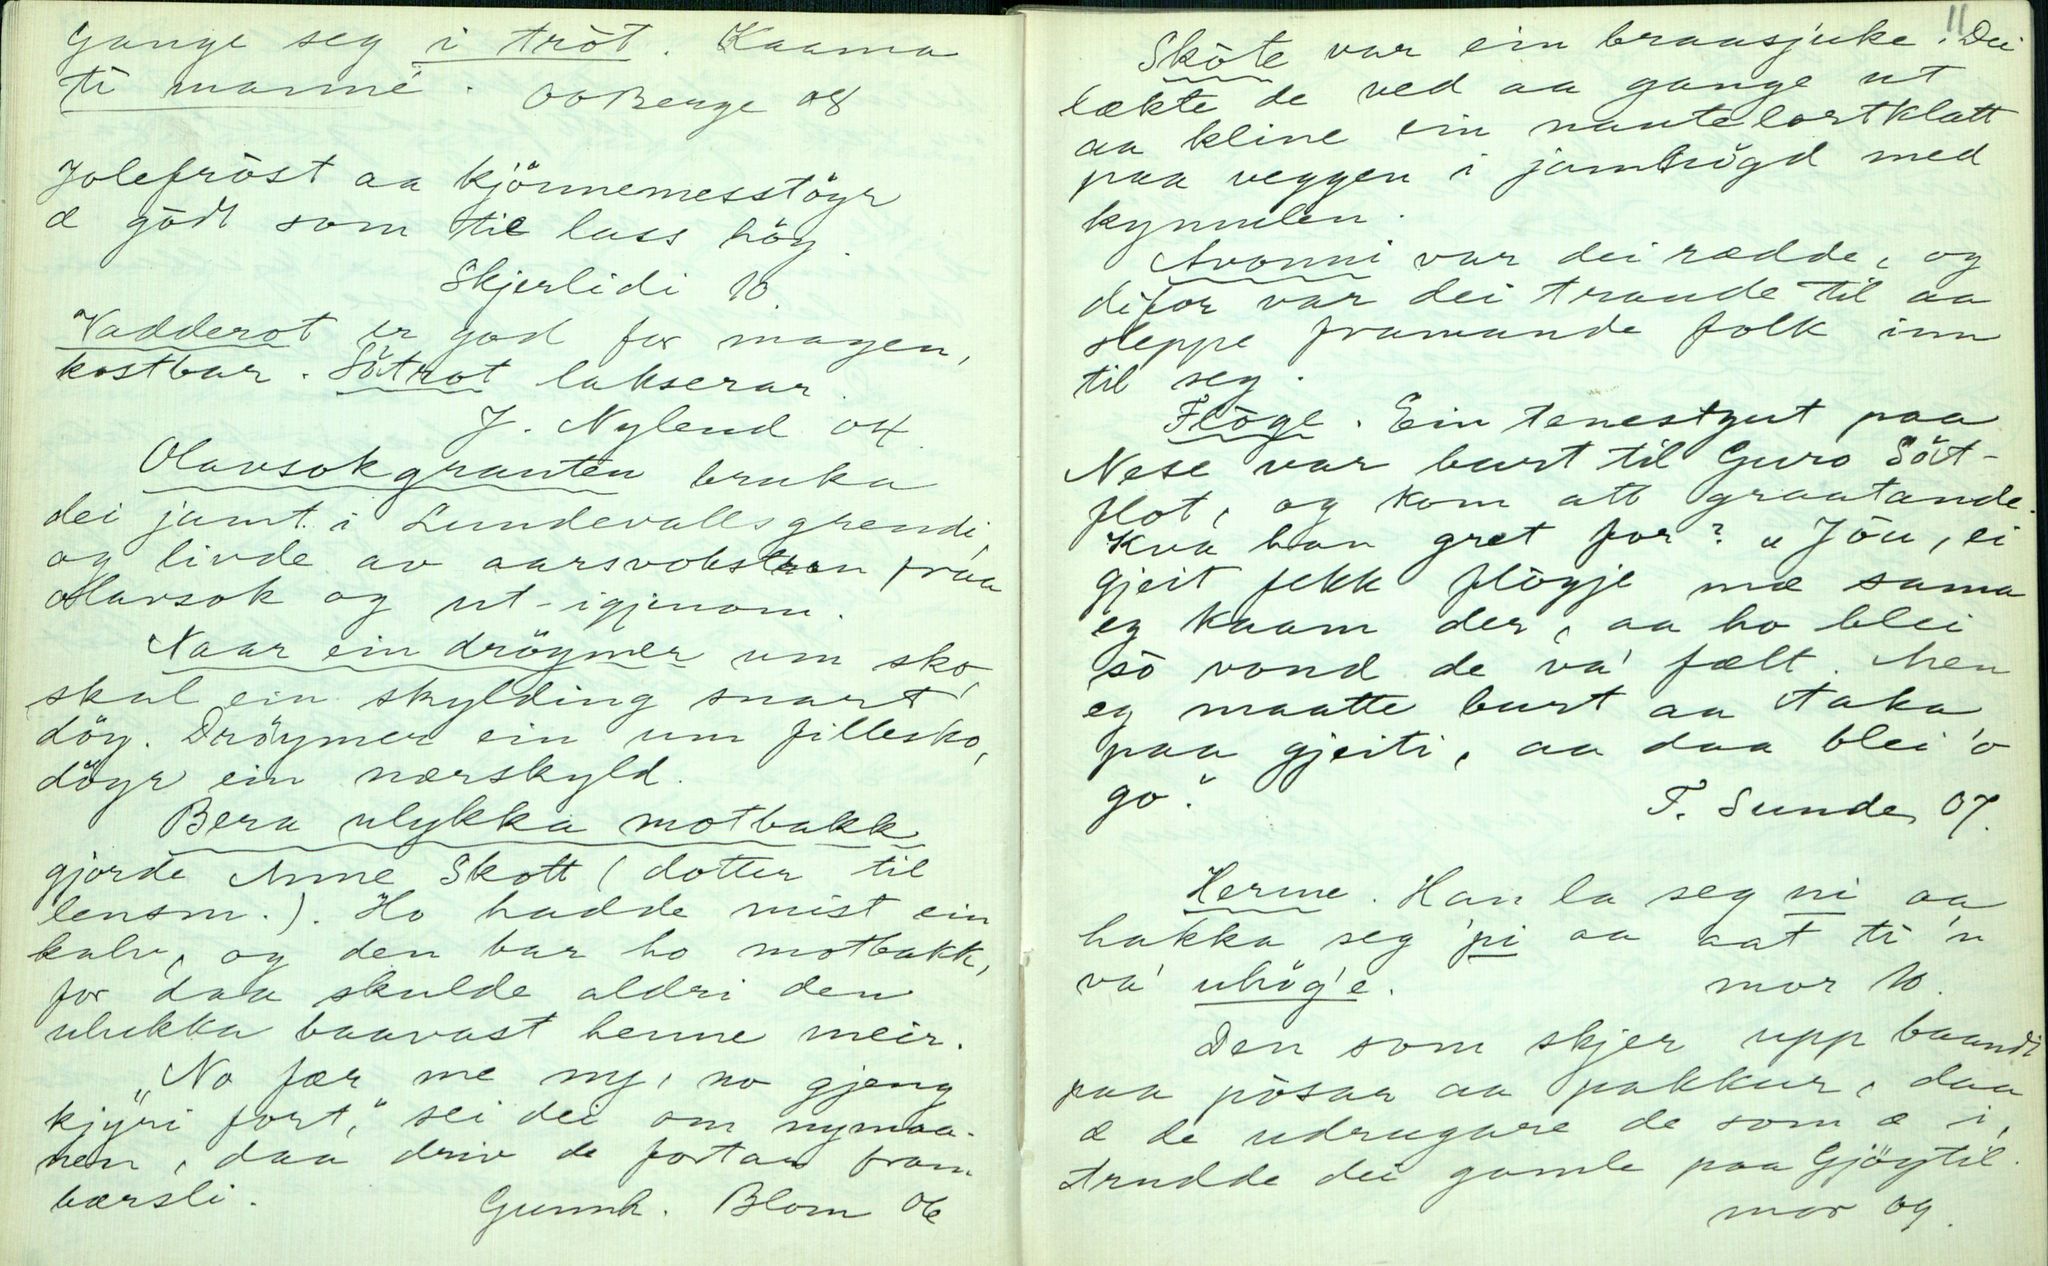 Gange seg i tròt. Kaama
ti manné. OO Berge 08
Jolefròst aa kjönnemesstöyr
æ gödt som til lass höy.
Skjerlidi 10.
Vadderot er god for magen,
kostbar. Sötrot lakserar.
J. Nylend 04.
Olavsokgrauten bruka
dei jamt i Lundevallsgrendi,
og livde av aarsvoksteren fraa
Olavsok og ut-igjenom.
Naar ein dröymer um sko,
skal ein skylding snart
döy. Dröymer ein um fillesko,
döyr ein nærskyld.
Bera ulykka motbakk
gjorde Anne Skott (dotter til
lensm.). Ho hadde mist ein
kalv, og den bar ho motbakk,
for daa skulde aldri den
ulukka baavast henne meir.
"No fær me ny, no gjeng
kjÿri fort," sei dei om nymaa-
nen, daa driv de fortar fram
bærsli.
Gunnh. Blom 06
11
Skòte var ein braasjuke. Dei
lækte de ved aa gange ut
aa kline ein nautelortklatt
paa veggen i jamhögd med
kynnulen.
Avonni var dei rædde, og
difor var dei traude til aa
sleppe framande folk inn
til seg.
Flòge. Ein tenestgut paa
Nese var burt til Guro Söt-
flot, og kom att graatande.
Kva han gret for? "Jöu, ei
gjeit fekk flògje mæ sama
eg kaam der, aa ho blei
sò vond de va' fælt. Men
eg maatte burt aa taka
paa gjeiti, aa daa blei 'o
go."
T. Sunde, 07.
Herme. Han la seg ni aa
hakka seg 'pi aa aat ti 'n
va' uhög'e.
mor 10.
Den som skjer upp baandi
paa pòsar aa pakkur, daa
æ de udrugare de som æ i,
trudde dei gamle paa Gjöytil.
mor 09.